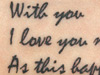 With you
I love you
As this